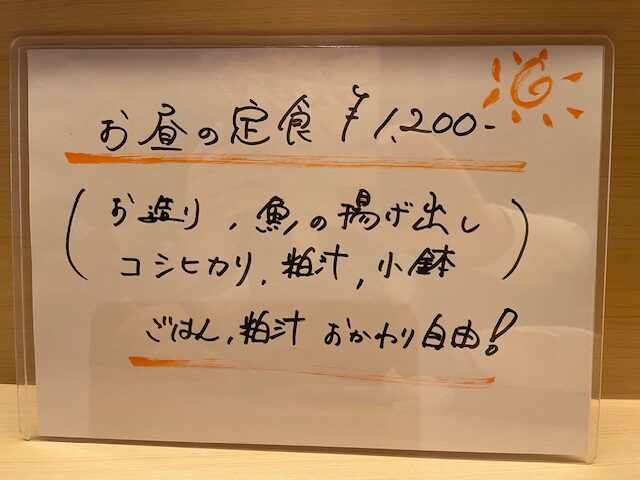 お昼の定食 ¥1,200-
(お造り,魚の揚げ出し
コシヒカリ,粕汁,小鉢)
ごはん,粕汁 おかわり自由!